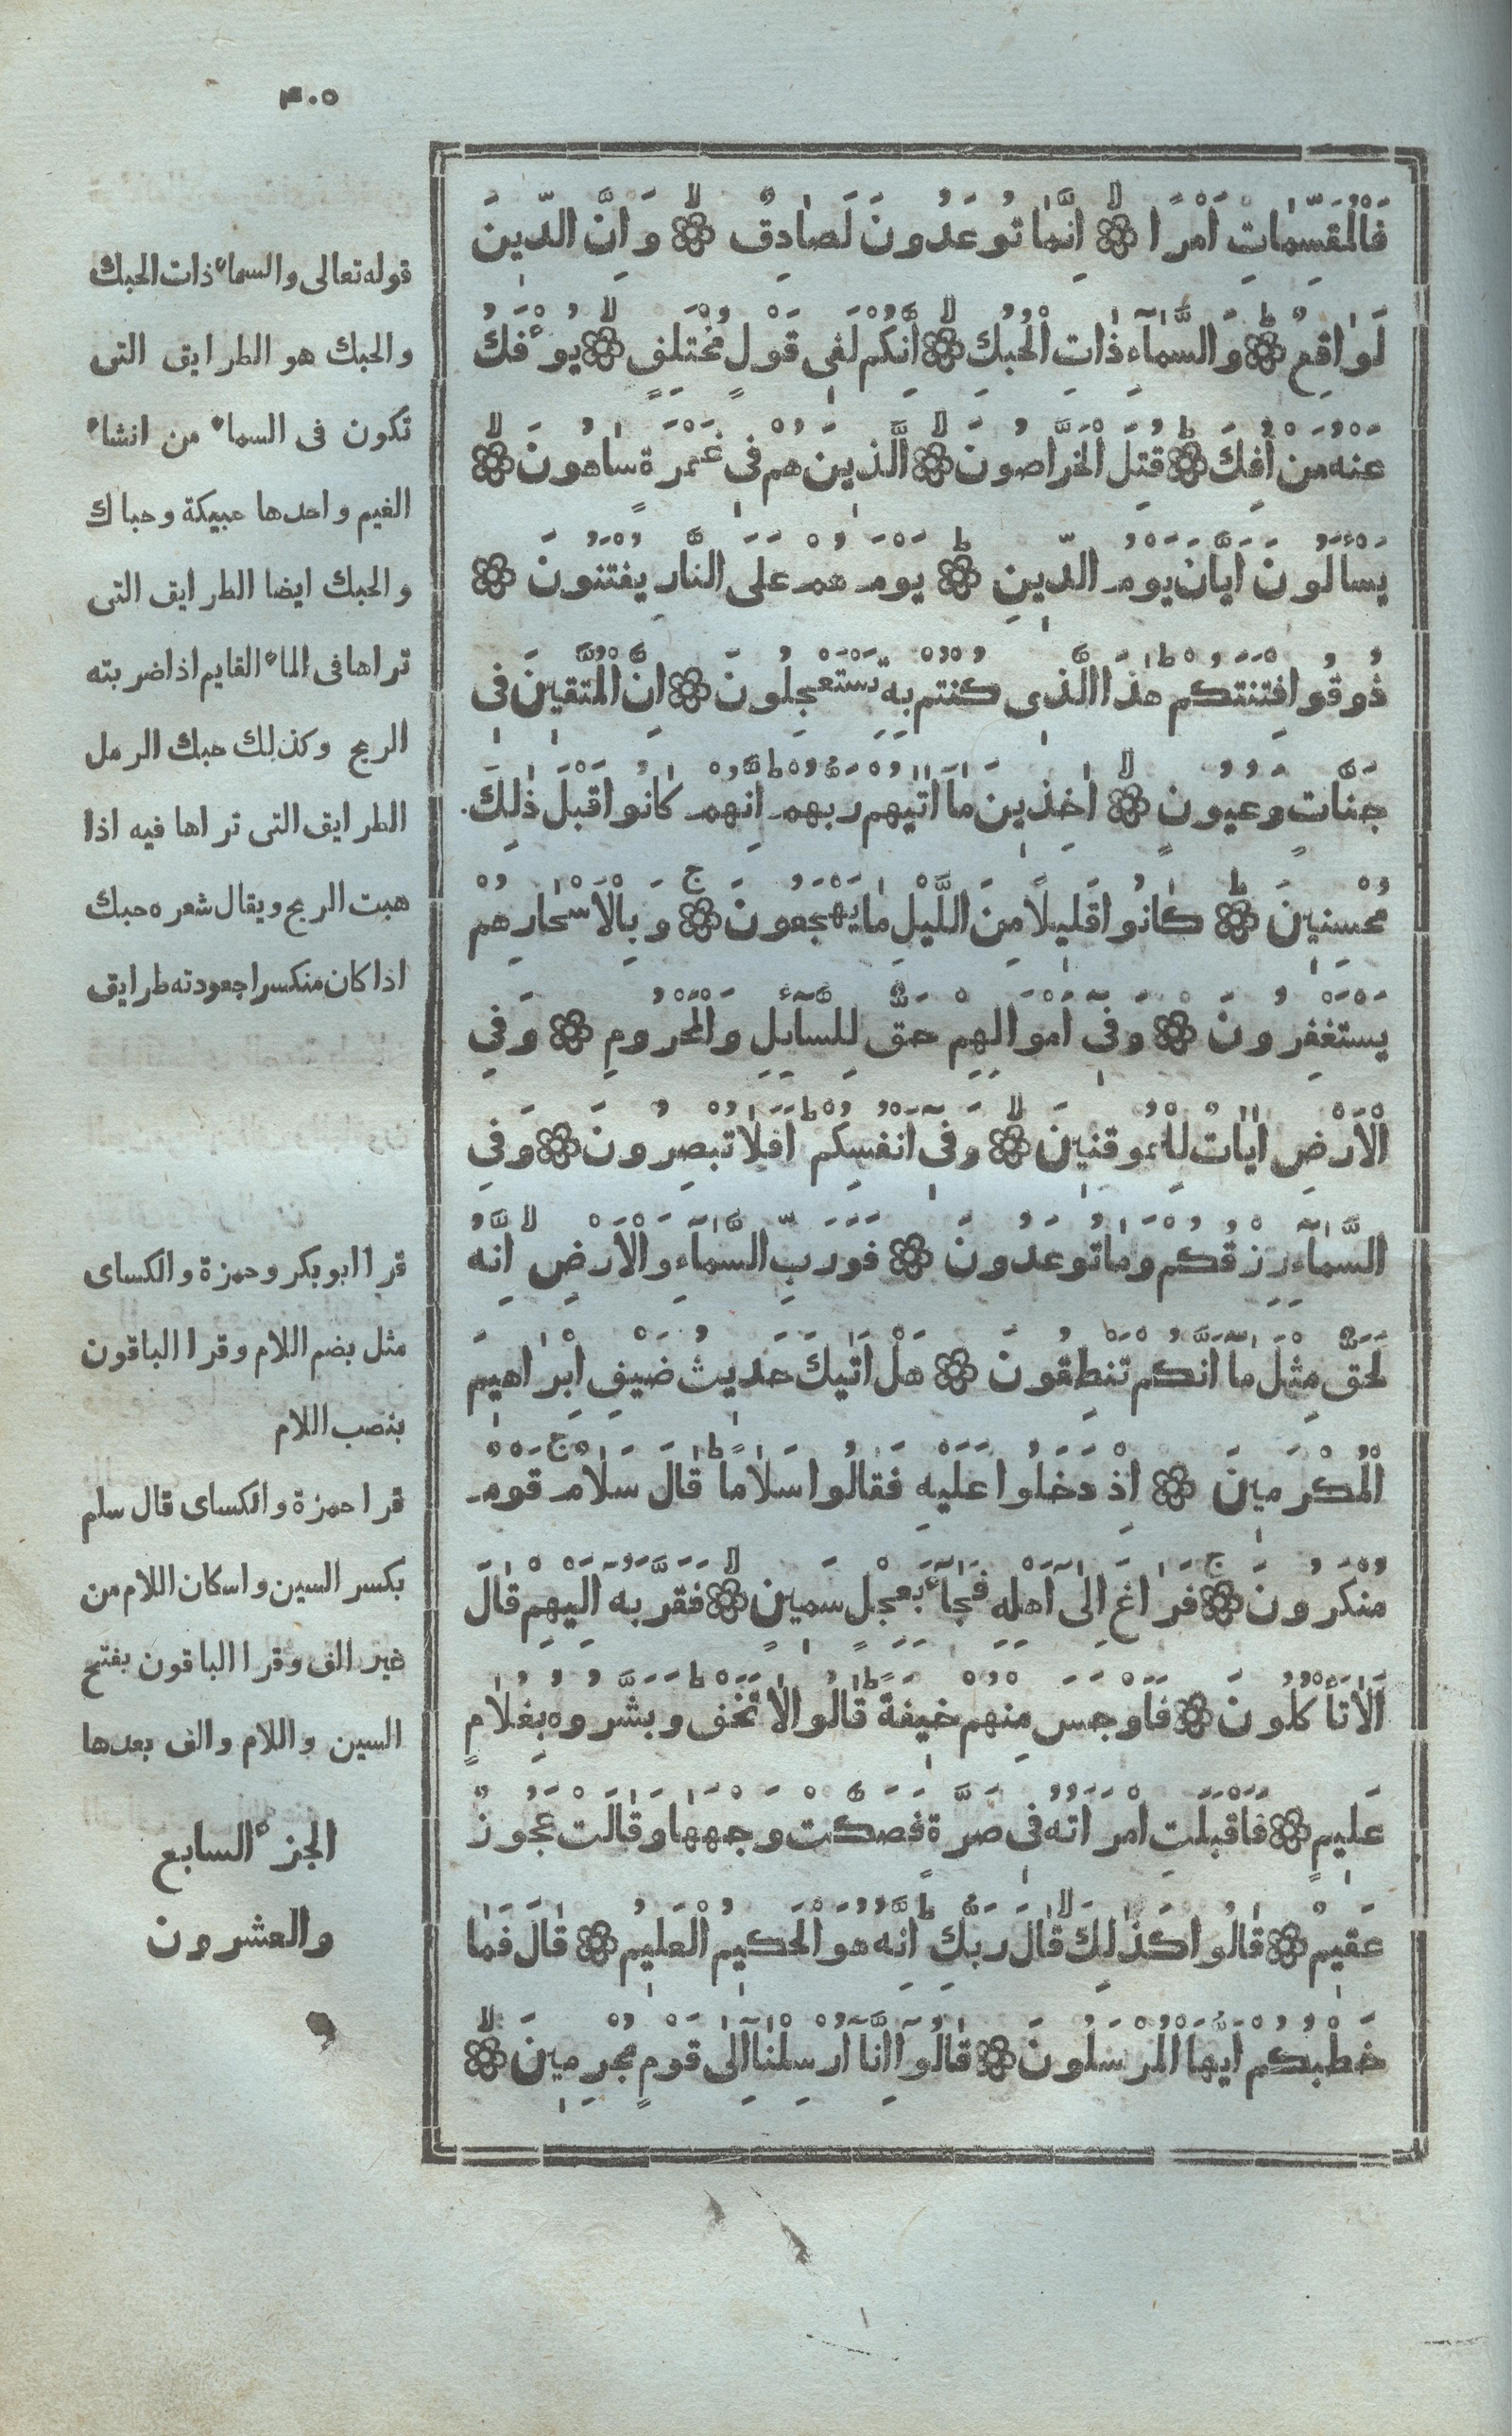 ٤٠٥
فَالْمُقَسِّمَاتِ اَمْرًا ۙ اِنَّمَا تُوعَدُونَ لَصَادِقٌ ۙ وَ اِنَّ الدِّينَ
لَوَاقِعٌ ؕ وَ السَّمَآءِ ذَاتِ الْحُبُكِ ۙ اِنَّكُمْ لَفِي قَوْلٍ مُخْتَلِفٍ ۙ يُؤْفَكُ
عَنْهُ مَنْ اُفِكَ ؕ قُتِلَ الْخَرَّاصُونَ ۙ الَّذِينَ هُمْ فِي غَمْرَةٍ سَاهُونَ ۙ
يَسْأَلُونَ اَيَّانَ يَوْمُ الدِّينِ ؕ يَوْمَ هُمْ عَلَى النَّارِ يُفْتَنُونَ
ذُوقُوا فِتْنَتَكُمْ ؕ هٰذَا الَّذِي كُنْتُمْ بِهِ تَسْتَعْجِلُونَ اِنَّ الْمُتَّقِينَ فِي
جَنَّاتٍ وَعُيُونٍ ۙ اٰخِذِينَ مَآ اٰتٰيهُمْ رَبُّهُمْ ؕ اِنَّهُمْ كَانُوا قَبْلَ ذٰلِكَ
مُحْسِنِينَ ؕ كَانُوا قَلِيلًا مِنَ اللَّيْلِ مَا يَهْجَعُونَ ۚ وَ بِالْاَسْحَارِ هُمْ
يَسْتَغْفِرُونَ وَ فِيٓ اَمْوَالِهِمْ حَقٌّ لِلسَّآئِلِ وَ الْمَحْرُومِ وَ فِي
الْاَرْضِ اٰيَاتٌ لِلْمُوقِنِينَ ۙ وَ فِيٓ اَنْفُسِكُمْ ؕ اَفَلَا تُبْصِرُونَ وَ فِي
السَّمَآءِ رِزْقُكُمْ وَمَا تُوعَدُونَ فَوَرَبِّ السَّمَآءِ وَ الْاَرْضِ اِنَّهُ
لَحَقٌّ مِثْلَ مَآ اَنَّكُمْ تَنْطِقُونَ هَلْ اَتٰيكَ حَدِيثُ ضَيْفِ اِبْرَاهِيمَ
الْمُكْرَمِينَ اِذْ دَخَلُوا عَلَيْهِ فَقَالُوا سَلَامًا ؕ قَالَ سَلَامٌ ۚ قَوْمٌ
مُنْكَرُونَ ۚ فَرَاغَ اِلٰىٓ اَهْلِهِ فَجَآءَ بِعِجْلٍ سَمِينٍ ۙ فَقَرَّبَهُٓ اِلَيْهِمْ قَالَ
اَلَا تَأْكُلُونَ فَاَوْجَسَ مِنْهُمْ خِيفَةً ؕ قَالُوا لَا تَخَفْ ؕ وَ بَشَّرُوهُ بِغُلَامٍ
عَلِيمٍ فَاَقْبَلَتِ امْرَاَتُهُ فِي صَرَّةٍ فَصَكَّتْ وَجْهَهَا وَ قَالَتْ عَجُوزٌ
عَقِيمٌ قَالُوا كَذٰلِكِ ۙ قَالَ رَبُّكِ ؕ اِنَّهُ هُوَ الْحَكِيمُ الْعَلِيمُ قَالَ فَمَا
خَطْبُكُمْ اَيُّهَا الْمُرْسَلُونَ قَالُوٓا اِنَّآ اُرْسِلْنَآ اِلٰى قَوْمٍ مُجْرِمِينَ ۙ
قوله تعالى والسماء ذات الحبك
والحبك هو الطرايق التى
تكون فى السماء من انشاء
الغيم واحدها حبيكة وحباك
والحبك ايضا الطرايق التى
تراها فى الماء القايم اذا ضربته
الريح وكذلك حبك الرمل
الطرايق التى تراها فيه اذا
هبت الريح ويقال شعره حبك
اذا كان منكسرا جعودته طرايق
قرا ابو بكر وحمزة والكساى
مثل بضم اللام وقرا الباقون
بنصب اللام
قرا حمزة والكساى قال سلم
بكسر السين واسكان اللام من
غير الف وقرا الباقون بفتح
السين واللام والف بعدها
الجزء السابع
والعشرون